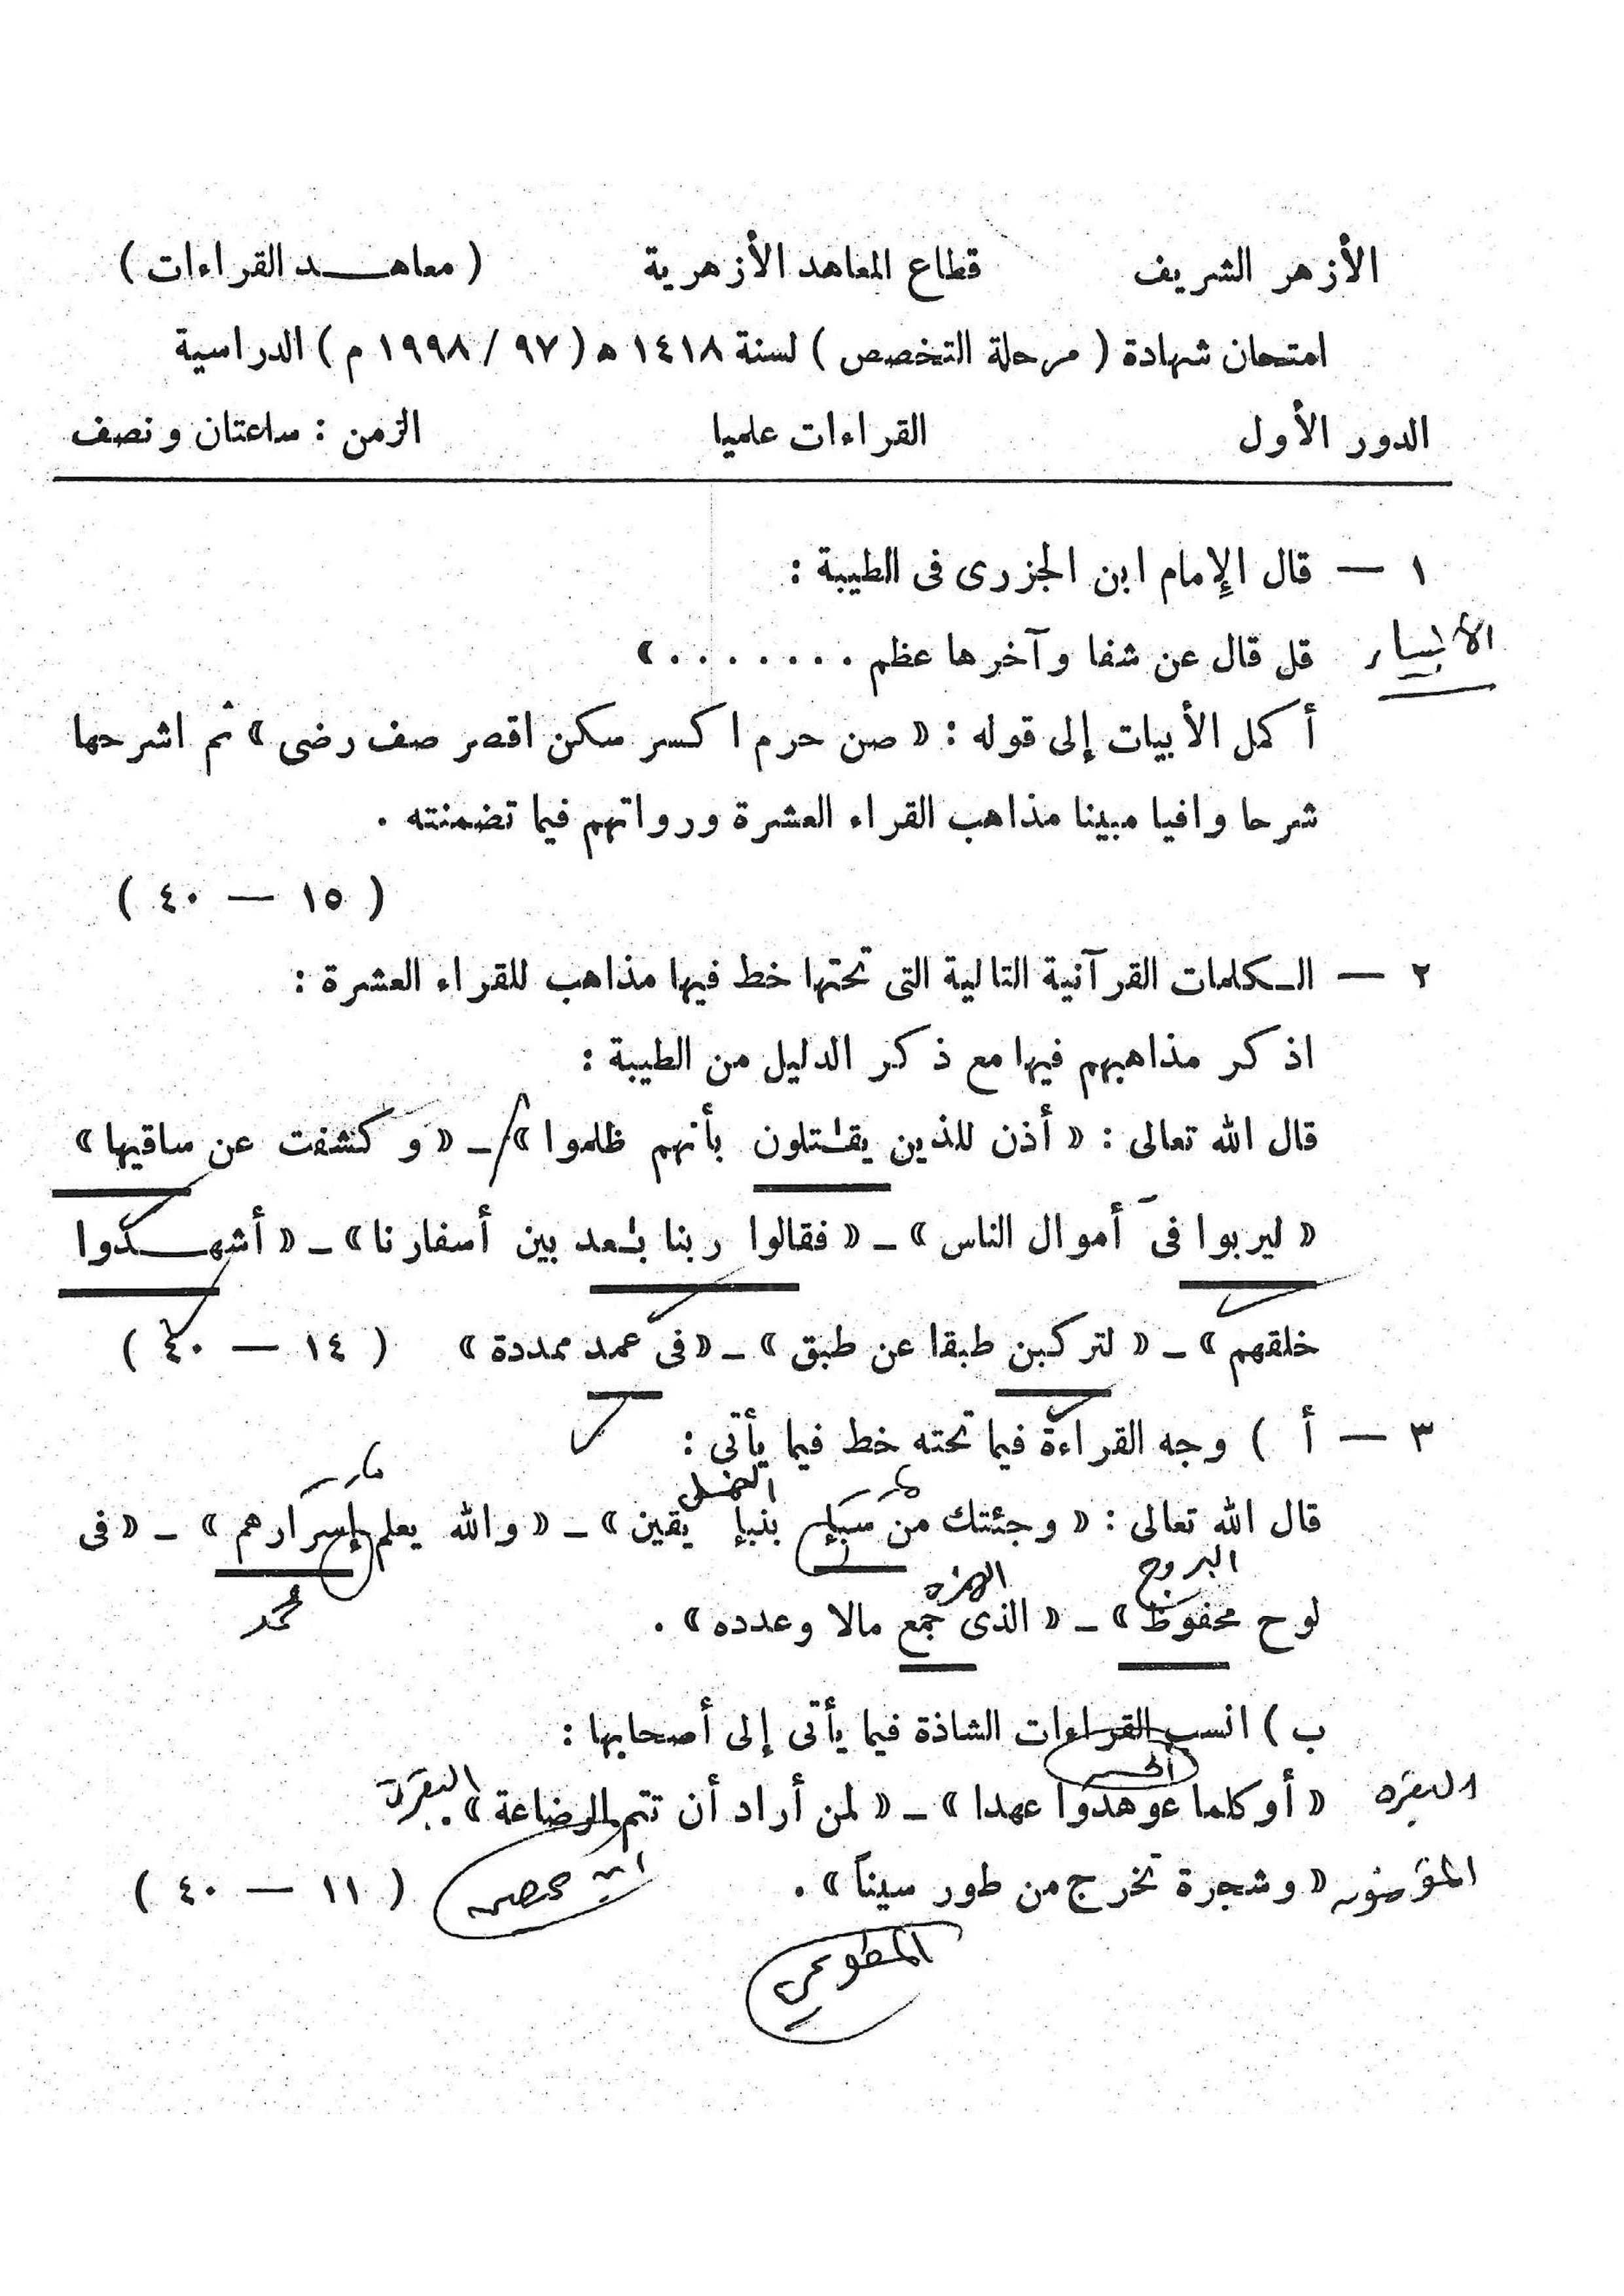 الأزهر الشريف قطاع المعاهد الأزهرية ( معاهـــد القراءات )
امتحان شهادة ( مرحلة التخصص ) لسنة ١٤١٨ ه ( ٩٧ / ١٩٩٨ م ) الدراسية
الدور الأول القراءات علميا الزمن : ساعتان ونصف
١ — قال الإمام ابن الجزرى فى الطيبة :
الأنبياء قل قال عن شفا وآخرها عظم . . . . . . . »
أكمل الأبيات إلى قوله : « صن حرم اكسر سكن اقصر صف رضى » ثم اشرحها
شرحا وافيا مبينا مذاهب القراء العشرة ورواتهم فيما تضمنته .
( ١٥ — ٤٠ )
٢ — الـكلمات القرآنية التالية التى تحتها خط فيها مذاهب للقراء العشرة :
اذكر مذاهبهم فيها مع ذكر الدليل من الطيبة :
قال الله تعالى : « أذن للذين يقـٰتلون بأنهم ظلموا » ـ « وكشفت عن ساقيها »
« ليربوا فى أموال الناس » ـ « فقالوا ربنا بـٰعد بين أسفارنا » ـ « أشهـــدوا
خلقهم » ـ « لتركبن طبقا عن طبق » ـ « فى عمد ممددة » ( ١٤ — ٤٠ )
٣ — أ ) وجه القراءة فيما تحته خط فيما يأتى :
النمل
قال الله تعالى : « وجئتك من سبإ بنبإ يقين » ـ « والله يعلم إسرارهم » ـ « فى
البروج الهمزه محمد
لوح محفوظ » ـ « الذى جمع مالا وعدده » .
ب ) انسب القراءات الشاذة فيما يأتى إلى أصحابها :
الحسن
البقره « أوكلما عوهدوا عهدا » ـ « لمن أراد أن تتم الرضاعة » . البقرة
« وشجرة تخرج من طور سيناً » . ابن محيصن ( ١١ — ٤٠ )
المطوعي